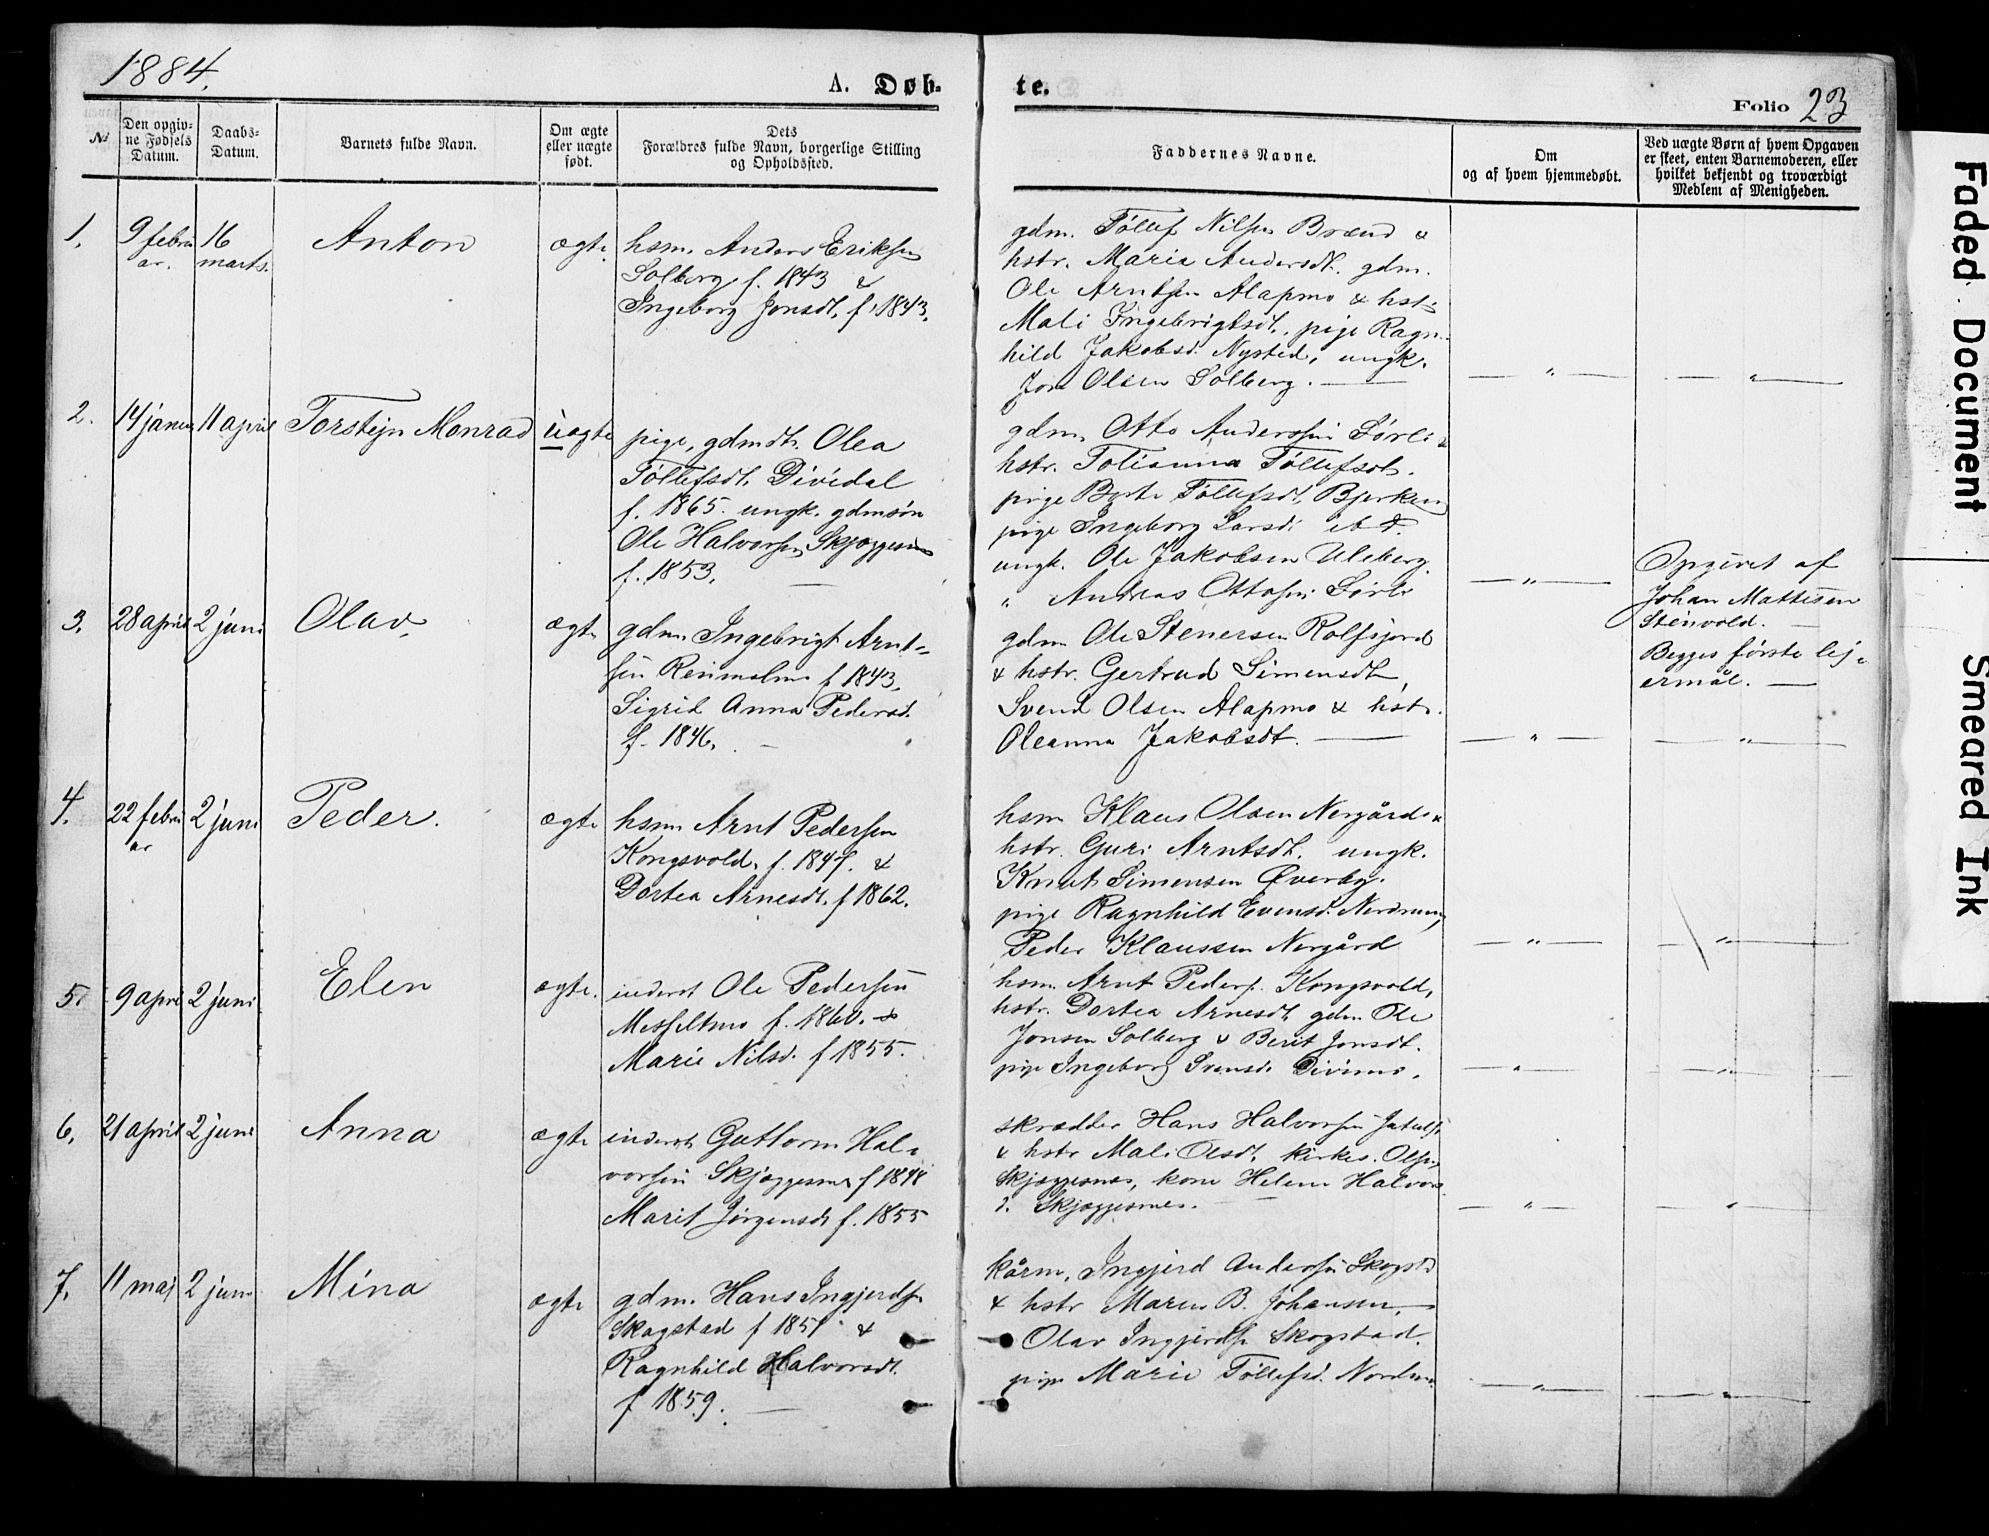 1884.
A. Døb-
te.
Folio 23
№
Den opgiv-
ne Fødsels
Datum.
Daabs-
Datum.
Barnets fulde Navn.
Om ægte
eller uægte
født.
Dets
Forældres fulde Navn, borgerlige Stilling
og Opholdssted.
Faddernes Navne.
Om
og af hvem hjemmedøbt.
Ved uægte Børn af hvem Opgaven
er skeet, enten Barnemoderen, eller
hvilket bekjendt og troværdigt
Medlem af Menigheden.
1.
9 febru
ar.
16
marts.
Anton
ægte.
hsm. Anders Eriksen
Solberg f. 1843 &
Ingeborg Jonsdt. f. 1843.
gdm. Tøllef Nilsen Brænd &
hstr. Maria Andersdt. gdm.
Ole Arntsen Alapmo & hstr
Mali Ingebrigtsdt. pige Ragn-
hild Jakobsd. Nysted, ungk.
Jon Olsen Solberg. —
— " —
— " —
2.
14 januar
11 april
Torstejn Monrad
uægte
pige, gdmdt. Olea
Tøllefsdt. Dividal
f. 1865. ungk. gdmsøn
Ole Halvorsen Skjæggesnes
f. 1853. —
gdm. Otto Anderssen Sørli &
hstr. Tolianna Tøllefsdt.
pige Berte Tøllefsdt. Bjerkeng
pige Ingeborg Larsd.
ungk. Ole Jakobsen Uleberg.
" Andreas Ottosen Sørli
— " —
Opgivet af
Johan Mattisen
Stenvold. —
Begges første lej-
ermål. —
3.
28 april
2 juni
Olav.
ægte
gdm. Ingebrigt Arnt-
sen Reinmelmo f. 1843.
Sigrid Anna Pedersd.
f. 1846. —
gdm Ole Stenersen Rolfsjord
& hstr. Gertrud Simensdt.
Svend Olsen Alapmo & hstr.
Oleanna Jakobsdt. —
— " —
— " —
4.
22 febru
ar
2 juni
Peder.
ægte
hsm. Arnt Pedersen
Kongsvold. f. 1847. &
Dortea Arnesdt. f 1862.
hsm Klaus Olsen Nergård &
hstr. Guri Arntsdt. ungk.
Knut Simensen Øverby.
pige Ragnhild Evensd. Nordmo,
Peder Klaussen Nergård
— " —
— " —
5.
9 april
2 juni
Elen
ægte.
inderst Ole Pedersen
Messeltmo f. 1860. &
Marie Nilsd. f 1855.
hsm. Arnt Peders. Kongsvold,
hstr. Dortea Arnesdt. gdm Ole
Jonsen Solberg & Berit Jonsdt.
pige Ingeborg Svensd. Divimo.
— " —
— " —
6.
21 april
2 juni
Anna
ægte
inderst Guttorm Hal-
vorsen Skjæggesnes f 1848
Marit Jørgensdt f. 1855
skrædder Hans Halvorsen
& hstr Mali Olsdt. kirkes. Olsen
Skjæggesnes, kone Helene Halvors
d. Skjæggesnes.
— " —
— " —
7.
11 maj
2 juni
Mina
ægte
gdm. Hans Ingjerds.
Skogstad f 1851 &
Ragnhild Halvorsdt.
f 1859. —
kårm. Ingjerd Andersen Skogst
& hstr Maren B. Johansen. —
Olav Ingjerds. Skogstad.
pige Marie Tøllefsd. Nordmo.
— " —
— " —
Faded Document
Smeared Ink